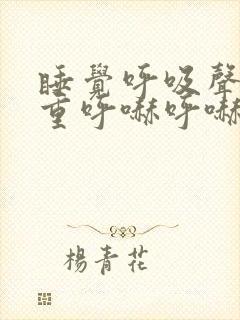 睡覺呼吸聲
重呼嚇呼嚇
楊青花